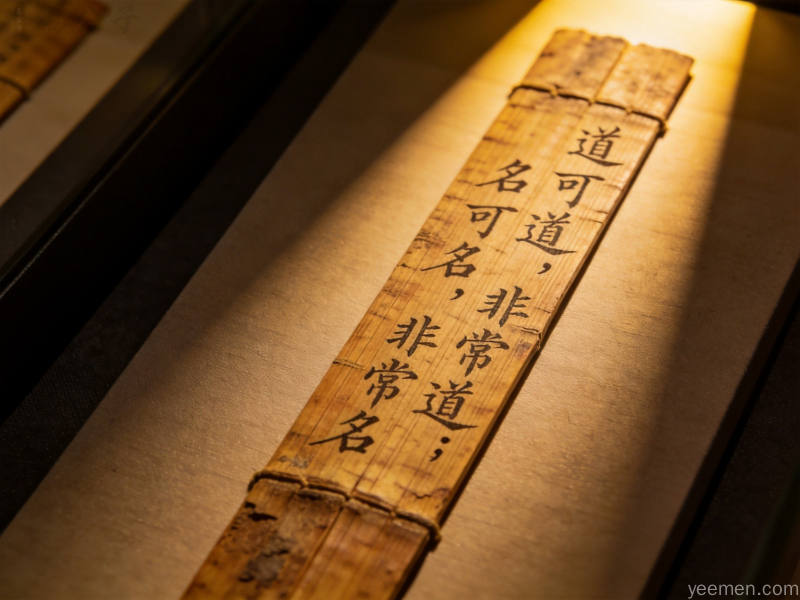 道可道，非常道；
名可名，非常名
yeemen.com